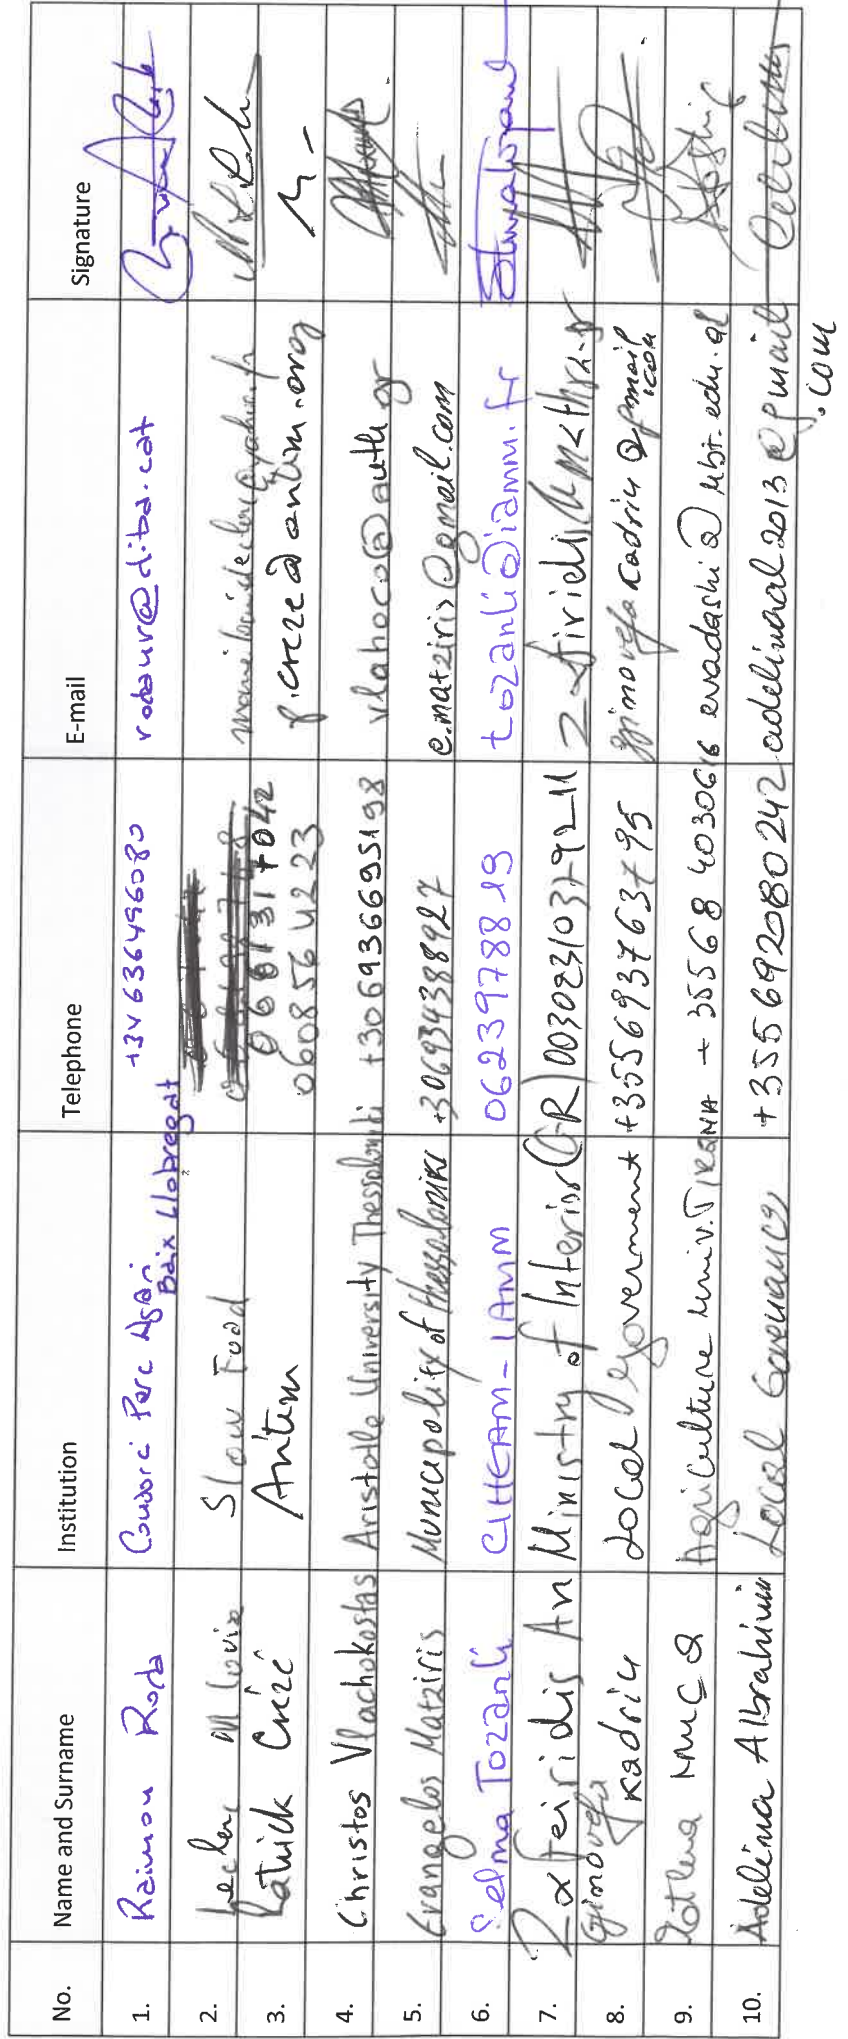 No. Name and Surname Institution Telephone E-mail Signature
1. Raimon Roda Consorci Parc Agrari Baix Llobregat +34 636496080 rodaur@diba.cat
2. Leclerc M Louise Slow Food
3. Patrick Crézé Anitem 0681317042 p.creze@anitem.org
0608564223
4. Christos Vlachokostas Aristotle University Thessaloniki +306936695198 vlahoco@auth.gr
5. Evangelos Matziris Municipality of Thessaloniki +306934388927 e.matziris@gmail.com
6. Selma Tozanli CIHEAM-IAMM 0623978819 tozanli@iamm.fr
7. Zafeiridis An Ministry of Interior (GR) 00302310379211
8. Gjinovefa Kadriu Local government +355693763795 gjinovefa kadriu @gmail.com
9. Mucə Agriculture Univ. TIRANA + 355 68 4030616 evadashi@ubt.edu.al
10. Adelina Albrahimi Local Governance +355692080242 adelinaal2013@gmail.com